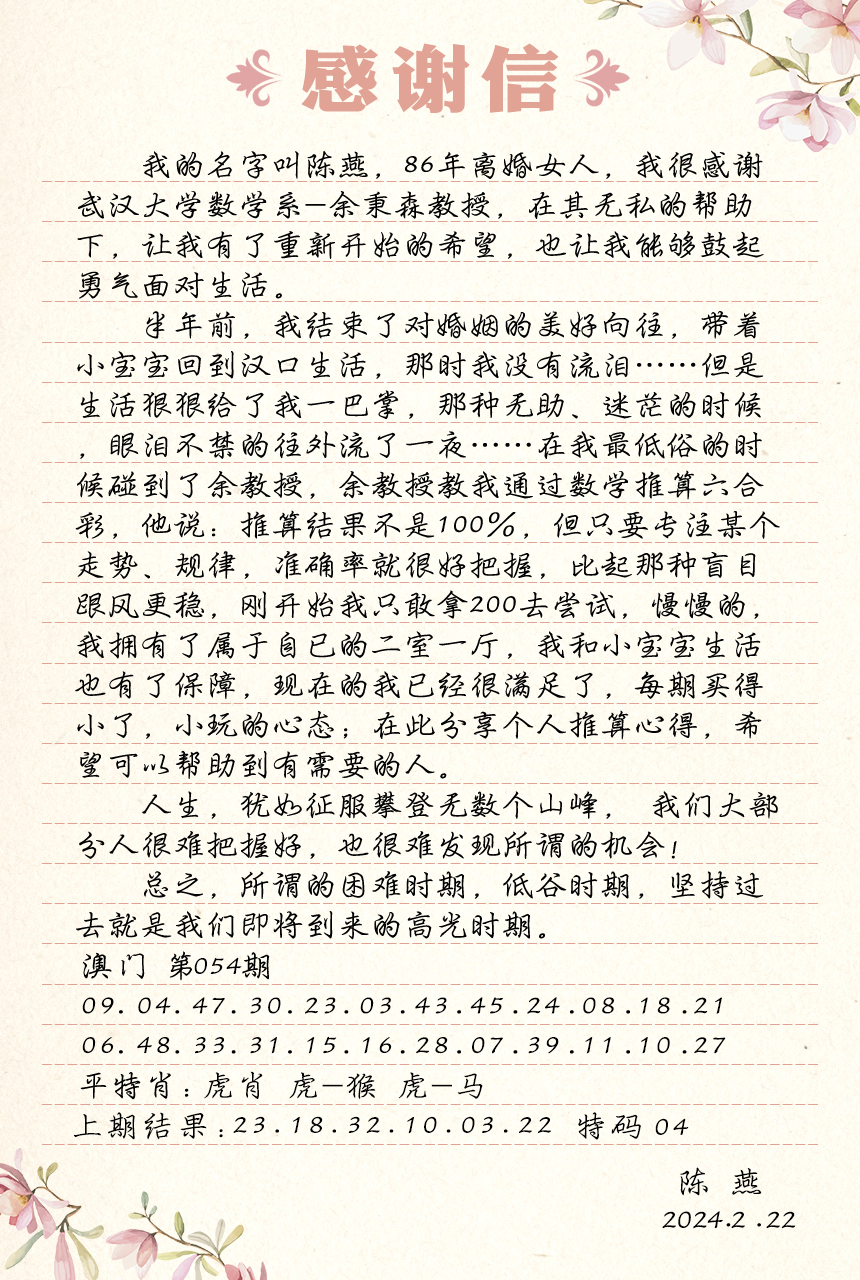 感谢信
我的名字叫陈燕，86年离婚女人，我很感谢
武汉大学数学系—余秉森教授，在其无私的帮助
下，让我有了重新开始的希望，也让我能够鼓起
勇气面对生活。
半年前，我结束了对婚姻的美好向往，带着
小宝宝回到汉口生活，那时我没有流泪……但是
生活狠狠给了我一巴掌，那种无助、迷茫的时候
，眼泪不禁的往外流了一夜……在我最低俗的时
候碰到了余教授，余教授教我通过数学推算六合
彩，他说：推算结果不是100%，但只要专注某个
走势、规律，准确率就很好把握，比起那种盲目
跟风更稳，刚开始我只敢拿200去尝试，慢慢的，
我拥有了属于自已的二室一厅，我和小宝宝生活
也有了保障，现在的我已经很满足了，每期买得
小了，小玩的心态；在此分享个人推算心得，希
望可以帮助到有需要的人。
人生，犹如征服攀登无数个山峰， 我们大部
分人很难把握好，也很难发现所谓的机会！
总之，所谓的困难时期，低谷时期，坚持过
去就是我们即将到来的高光时期。
澳门 第054期
09.04.47.30.23.03.43.45.24.08.18.21
06.48.33.31.15.16.28.07.39.11.10.27
平特肖：虎肖 虎—猴 虎—马
上期结果：23.18.32.10.03.22 特码 04
陈 燕
2024.2.22